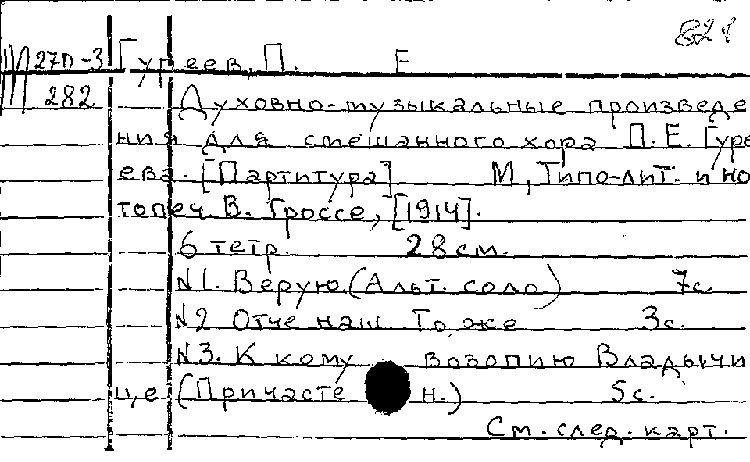 821
М 27п-3 Гуреев, П. Е
282 Духовно-музыкальные произведе
ния для смешанного хора П. Е. Гуре
ева. [Партитура] М, Типо-лит. и но
топеч. В. Гроссе, [1914].
6 тетр. 28 см.
N1. Верую (Альт. соло) 7с.
N2 Отче наш То же 3с.
N3. К кому возопию Владычи
це (Причасте н.) 5с.
См. след. карт.